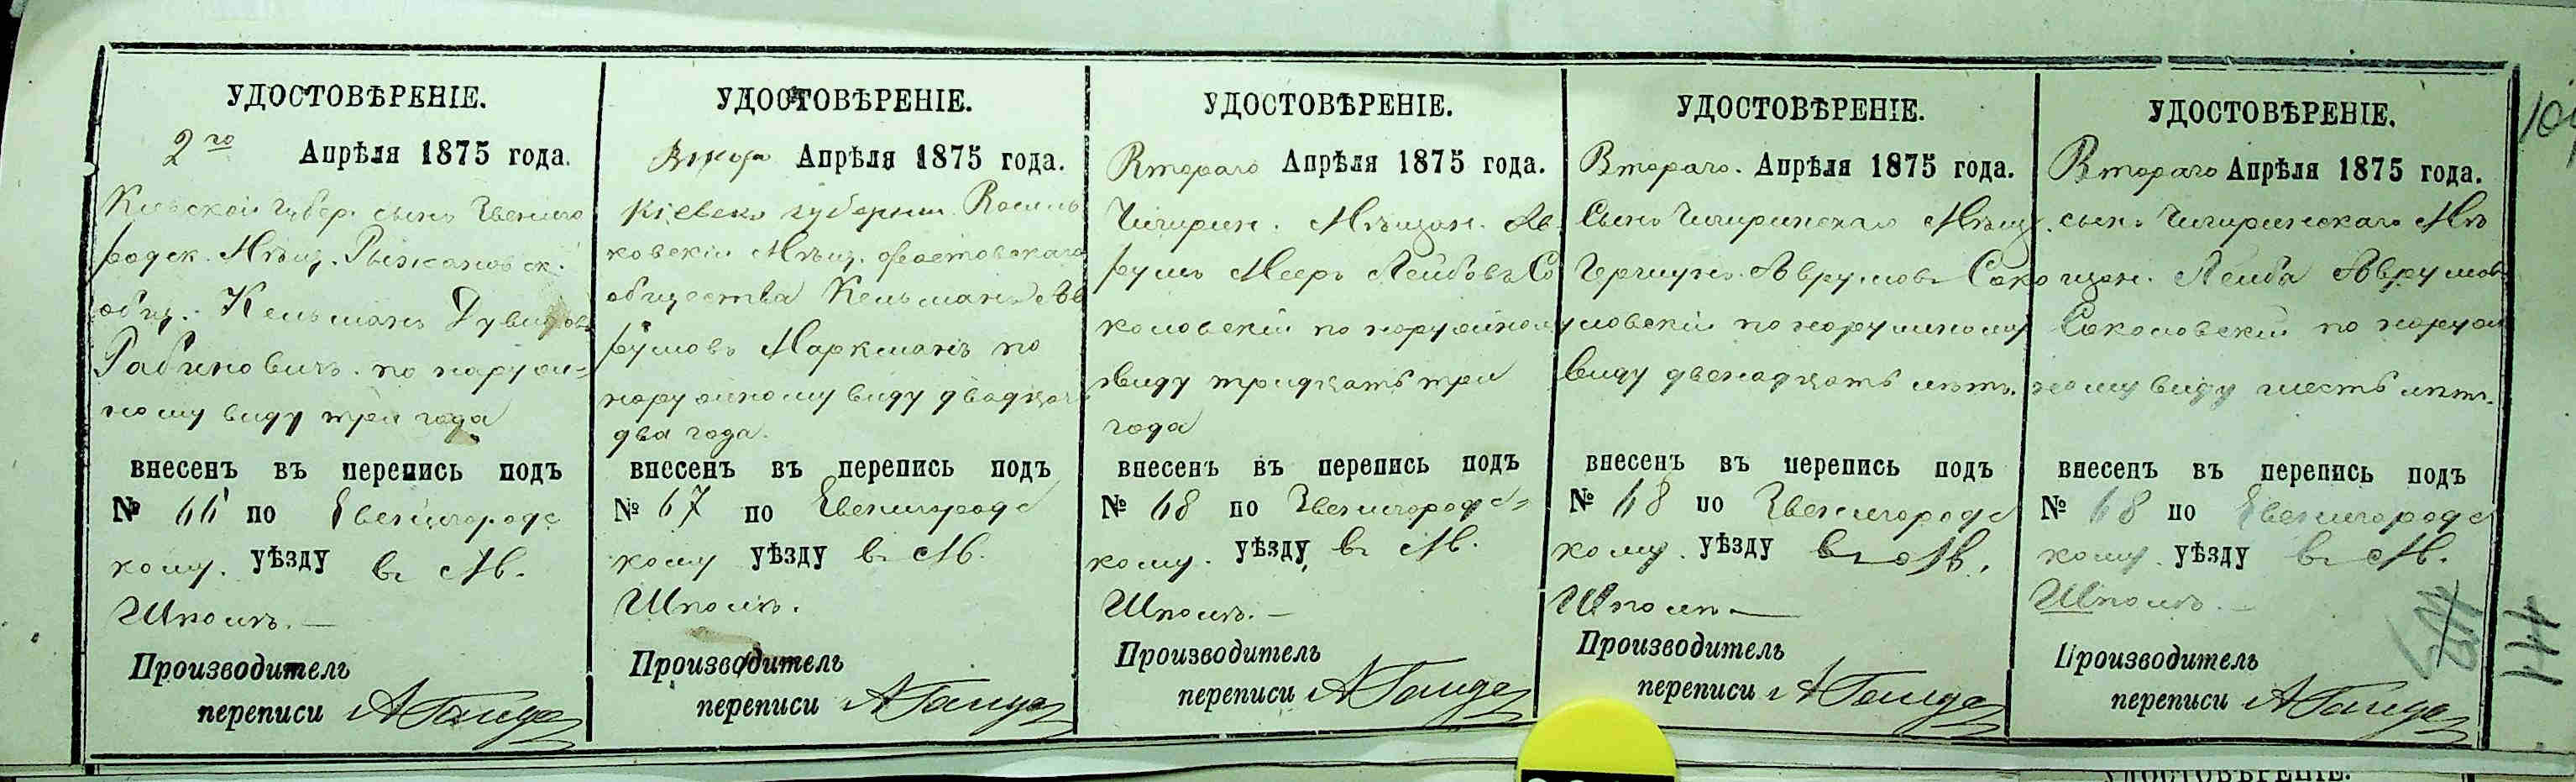 УДОСТОВѢРЕНІЕ.
2го Апрѣля 1875 года.
Кіевской губер. сынъ Звениго
родск. Мѣщ. Рыжановск.
общ. Кельманъ Дувидовъ
Рабиновичъ по наруж=
ному виду три года
внесенъ въ перепись подъ
№ 66 по Звенигородс
кому. уѣзду въ М.
Шполѣ. —
Производитель
переписи
УДОСТОВѢРЕНІЕ.
Втораго Апрѣля 1875 года.
Кіевск. губерніи Василь
ковскій Мѣщ. Фастовскаго
общества Кельманъ Ав
румовъ Маркманъ по
наружному виду двадцать
два года.
внесенъ въ перепись подъ
№ 67 по Звенигородс
кому уѣзду въ М.
Шполѣ.
Производитель
переписи
УДОСТОВѢРЕНІЕ.
Втораго Апрѣля 1875 года.
Чигирин. Мѣщан. Ав
румъ Мееръ Лейбовъ Со
коловскій по наружному
виду тридцать три
года
внесенъ въ перепись подъ
№ 68 по Звенигородс=
кому. уѣзду въ М.
Шполѣ. —
Производитель
переписи
УДОСТОВѢРЕНІЕ.
Втораго. Апрѣля 1875 года.
Сынъ Чигиринскаго Мѣщ.
Гершунъ Аврумовъ Соко
ловскій по наружному
виду двенадцать лѣтъ.
внесенъ въ перепись подъ
№ 68 по Звенигородс
кому. уѣзду въ М.
Шполѣ —
Производитель
переписи
УДОСТОВѢРЕНІЕ.
Втораго Апрѣля 1875 года.
сынъ Чигиринскаго Мѣ
щан. Лейба Аврумовъ
Соколовскій по наруж
ному виду шесть лѣтъ.
внесенъ въ перепись подъ
№ 68 по Звенигородс
кому. уѣзду въ М.
Шполѣ. —
Производитель
переписи
144